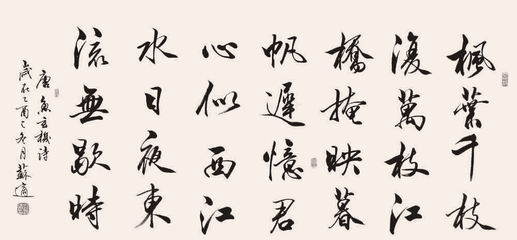 楓葉千枝
復萬枝江
橋掩映暮
帆遲憶君
心似西江
水日夜東
流無歇時
唐魚玄機詩
歲在乙酉之冬月蘇適